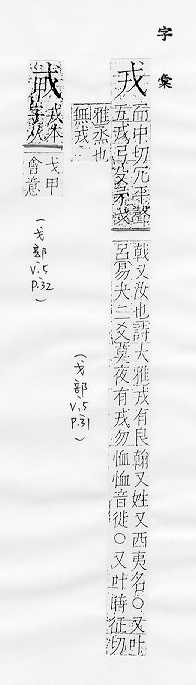 字彙
戎
而中切冗平聲
五戎弓殳矛
戟又汝也詩大雅戎有良翰又姓又西夷名○又叶
易夬二爻莫夜有戎勿恤恤音徙○又叶時征切
雅烝也
無戎
(戈部 V.5 P.31)
戎本
字从
戈甲
會意
(戈部 V.5 P.32)